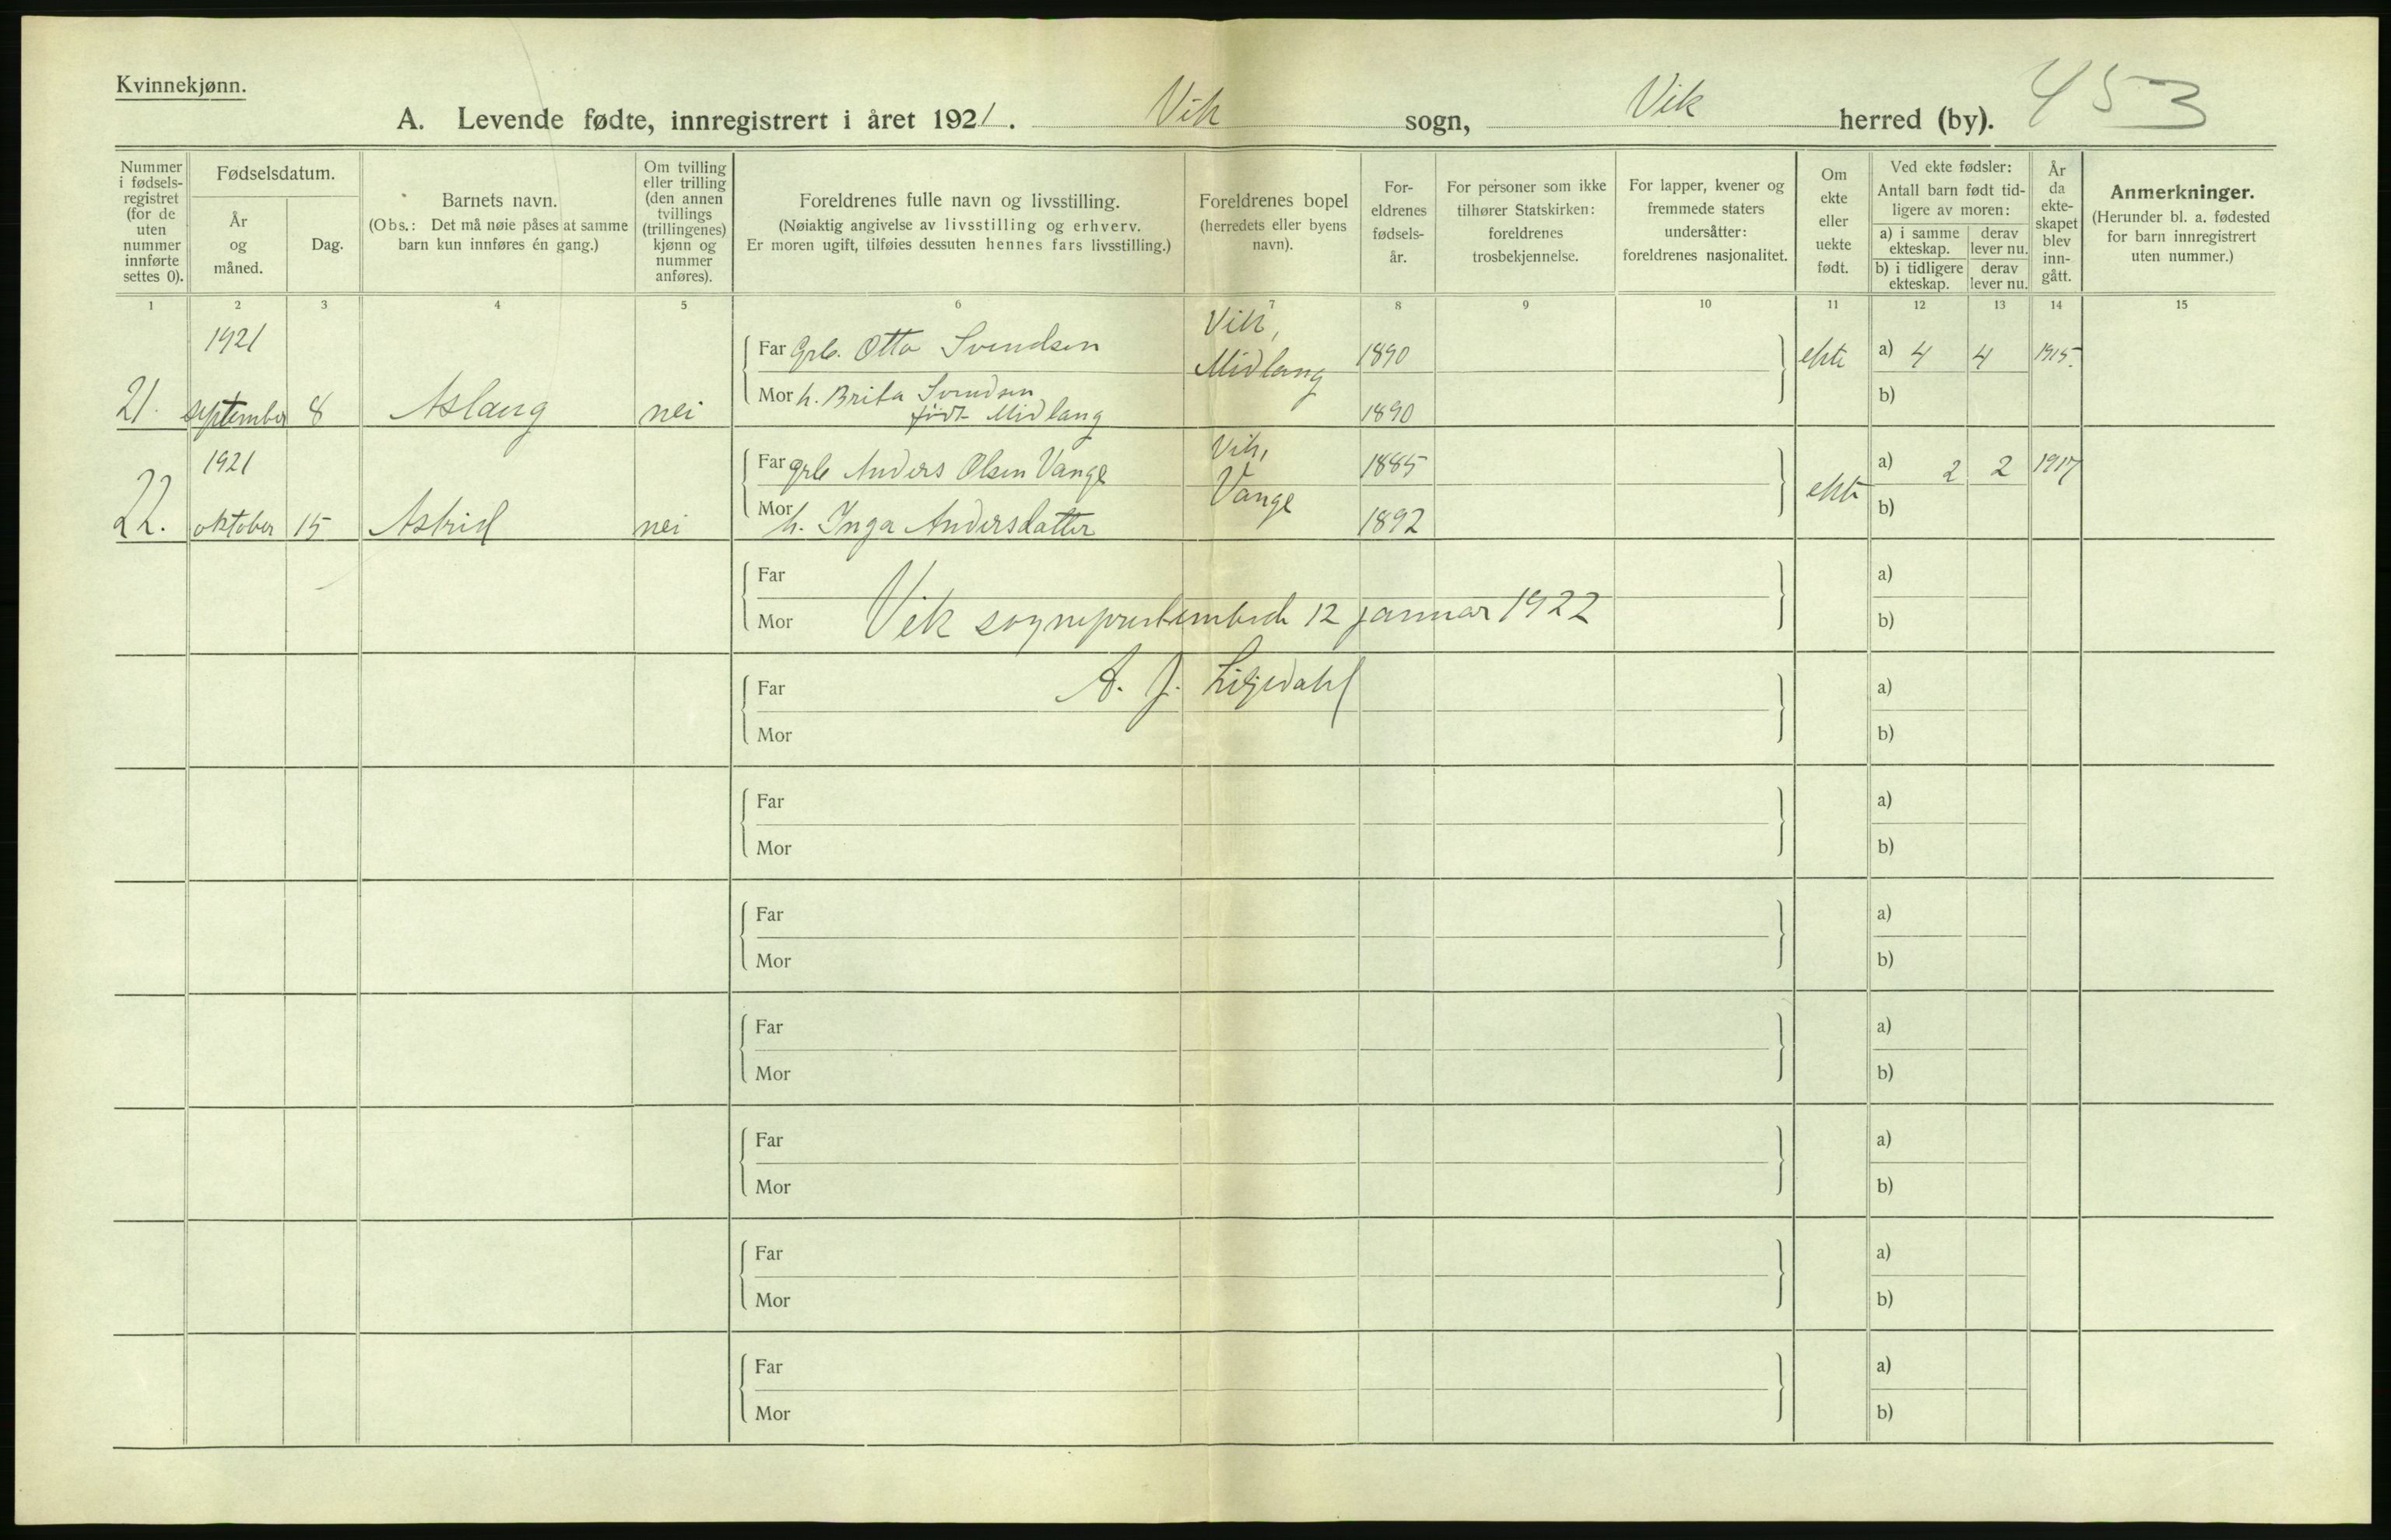 Kvinnekjønn.
A. Levende fødte, innregistrert i året 1921. Vik sogn, Vik herred (by). 453
Nummer i fødsels-registret (for de uten nummer innførte settes 0).
Fødselsdatum.
År og måned.
Dag.
Barnets navn.
(Obs.: Det må nøie påses at samme barn kun innføres én gang.)
Om tvilling eller trilling (den annen tvillings (trillingenes) kjønn og nummer anføres).
Foreldrenes fulle navn og livsstilling.
(Nøiaktig angivelse av livsstilling og erhverv.
Er moren ugift, tilføies dessuten hennes fars livsstilling.)
Foreldrenes bopel
(herredets eller byens navn).
For-eldrenes fødsels-år.
For personer som ikke tilhører Statskirken: foreldrenes trosbekjennelse.
For lapper, kvener og fremmede staters undersåtter: foreldrenes nasjonalitet.
Om ekte eller uekte født.
Ved ekte fødsler:
Antall barn født tid-ligere av moren:
a) i samme ekteskap.
derav lever nu.
b) i tidligere ekteskap.
derav lever nu.
År da ekte-skapet blev inn-gått.
Anmerkninger.
(Herunder bl. a. fødested for barn innregistrert uten nummer.)
1 2 3 4 5 6 7 8 9 10 11 12 13 14 15
1921
21. september 8 Aslaug nei
Far Grb. Otto Svendsen
Mor h. Brita Svendsen
født Midlang
Vik,
Midlang
1890
1890
ekte a) 4 4 1915.
b)
1921
22. oktober 15 Astrid nei
Far grb Anders Olsen Vange
Mor h. Inga Andersdatter
Vik,
Vange
1885
1892
ekte a) 2 2 1917
b)
Far a)
Mor b)
Vik sogneprestembede 12 januar 1922
Far a)
A. J. Liljedahl
Mor b)
Far a)
Mor b)
Far a)
Mor b)
Far a)
Mor b)
Far a)
Mor b)
Far a)
Mor b)
Far a)
Mor b)